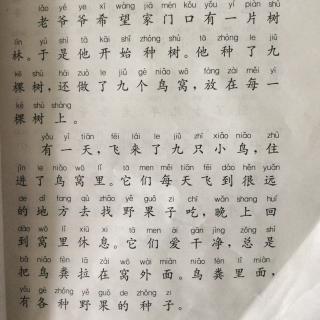 lǎo yé ye xī wàng jiā mén kǒu yǒu yí piàn shù
老爷爷希望家门口有一片树
lín yú shì tā kāi shǐ zhòng shù tā zhòng le jiǔ
林。于是他开始种树。他种了九
kē shù hái zuò le jiǔ gè niǎo wō fàng zài měi yì
棵树，还做了九个鸟窝，放在每一
kē shù shàng
棵树上。
yǒu yì tiān fēi lái le jiǔ zhī xiǎo niǎo zhù
有一天，飞来了九只小鸟，住
jìn le niǎo wō lǐ tā men měi tiān fēi dào hěn yuǎn
进了鸟窝里。它们每天飞到很远
de dì fang qù zhǎo yě guǒ zi chī wǎn shang huí
的地方去找野果子吃，晚上回
dào wō lǐ xiū xi tā men ài gān jìng zǒng shì
到窝里休息。它们爱干净，总是
bǎ niǎo fèn lā zài wō wài miàn niǎo fèn lǐ miàn
把鸟粪拉在窝外面。鸟粪里面，
yǒu gè zhǒng yě guǒ de zhǒng zi
有各种野果的种子。